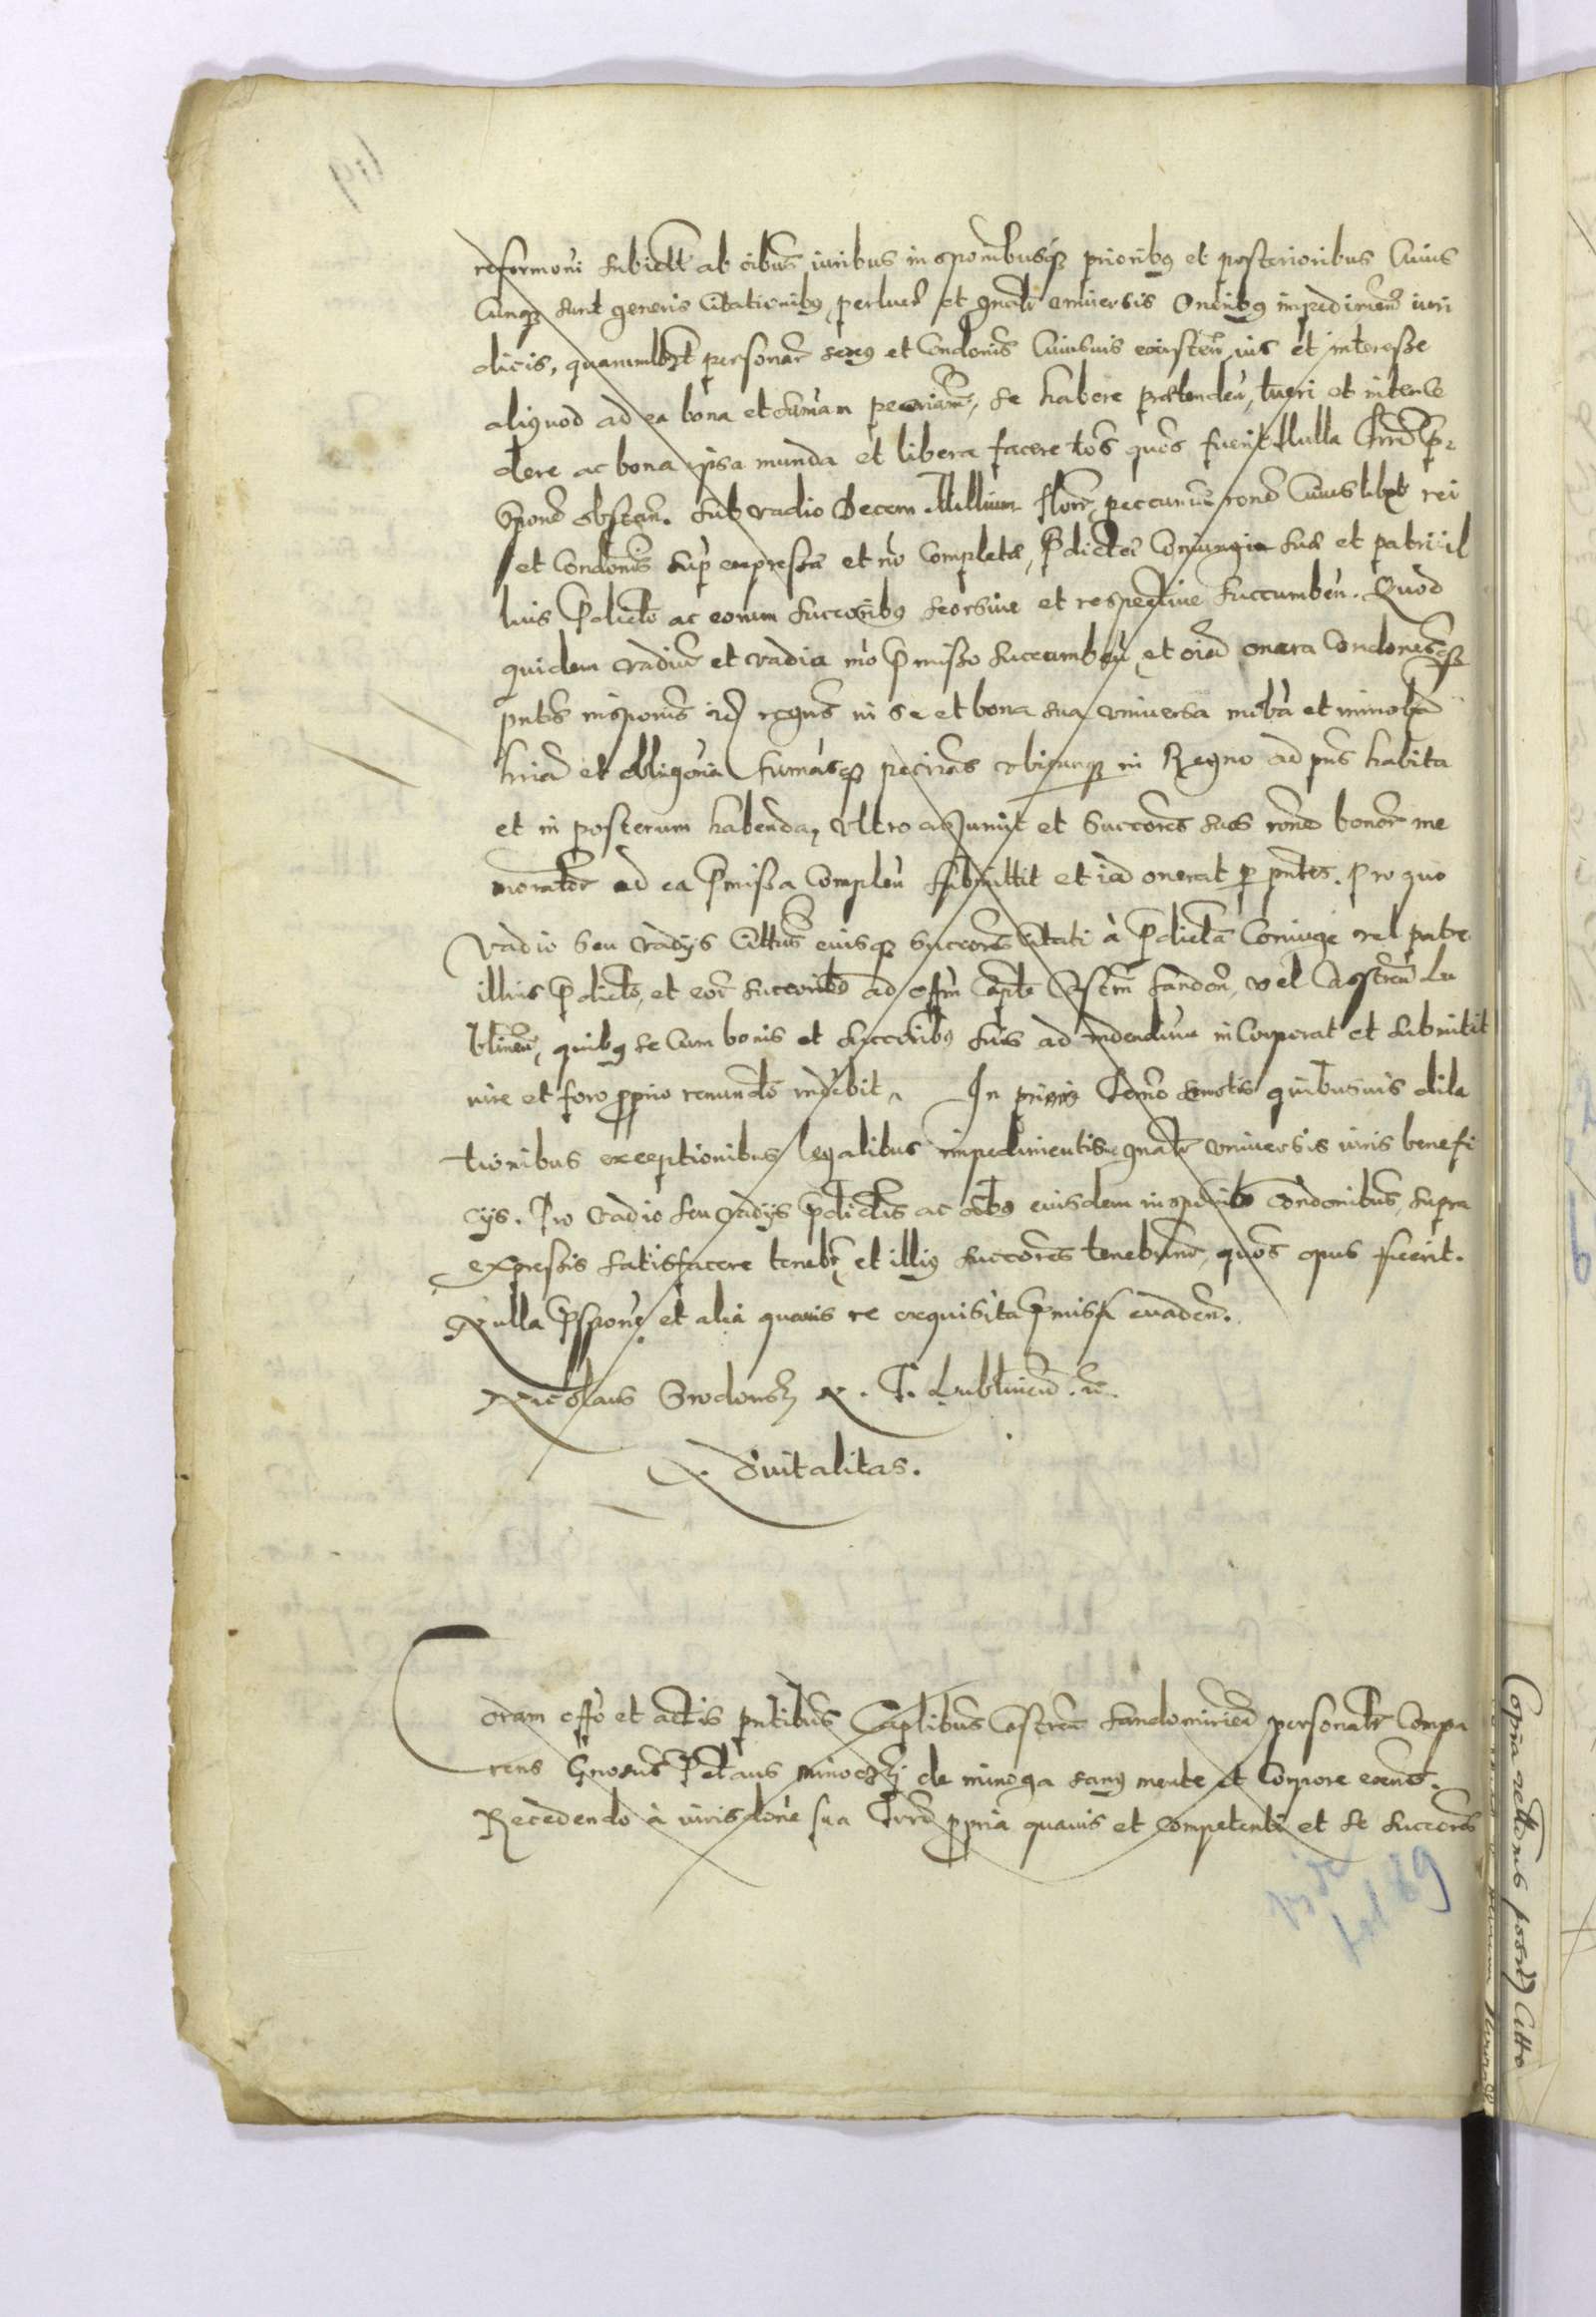 reformoni subiectt ab oibus iuribus inspombusq prioribus et posterioribus Cuius
Cunq sunt generis Citationibus perlucr et gnalr universis Oneribus impedimen iuri
dicis, quarumlibet personar sexus et Condonis Cuiusuis existen ius et interesse
aliquod ad ea bona et suman pecriam, se habere prætenden, tueri et interce
dere ac bona ipsa munda et libera facere tos quos fuerit Nulla Terrd pre
spone obstan. Sub vadio Decem Millium flore, peccuniæ rone Cuiuslibet rei
et Condonis supr expressæ et no Completæ, pdictæ Coniungi suæ et patri il
lius pdicto ac eorum succoribus seorsive et respective succumben. Quod
quidem vadiu et vadia mo pmisso succumben, et oia onera Condonesq
pntis insponis id regns in se et bona sua universa mobia et immobia
hria et obligoria sumasq pecrias ubicunq in Regno ad pns habita
et in posterum habenda, ultro assumit et Succores suos rone bonor me
morator ad ea pmissa Complen submittit et ia onerat p pntes. Pro quo
vadio seu vadys Cittus eiusq succores Citati à pdicta Coniuge vel patre
illius pdicto, et eor succoribus ad offm Capte Castrn Sandon, vel Castren Lu
blinen, quibus se Cum bonis et succoribus suis ad indendum inCorporat et submitit
iure et foro pprio renundo indebit. In primo Termo semotis quibusuis dila
tionibus exceptionibus legalibus impedimentis gnalr universis iuris benefi
cys. Pro vadio seu vadys pdictis ac oibus eiusdem inspnis Condonibus supra
expressis satisfacere tenebr, et illius succores tenebunr, quos opus fuerit.
Nulla pspone et alia quavis re exquisita pmissa evaden.
Nicolaus N. T. Lublinen.
Advitalitas.
Coram offo et actis pntibus Caplibus Castren Sandomirien personalr Compa
rens Gnosus minoczki de minoga sanus mente et Corpore exens.
Recedendo à iurisdone sua Terrd ppria quavis et Competenti et se succores
vide
fol 89
Copia